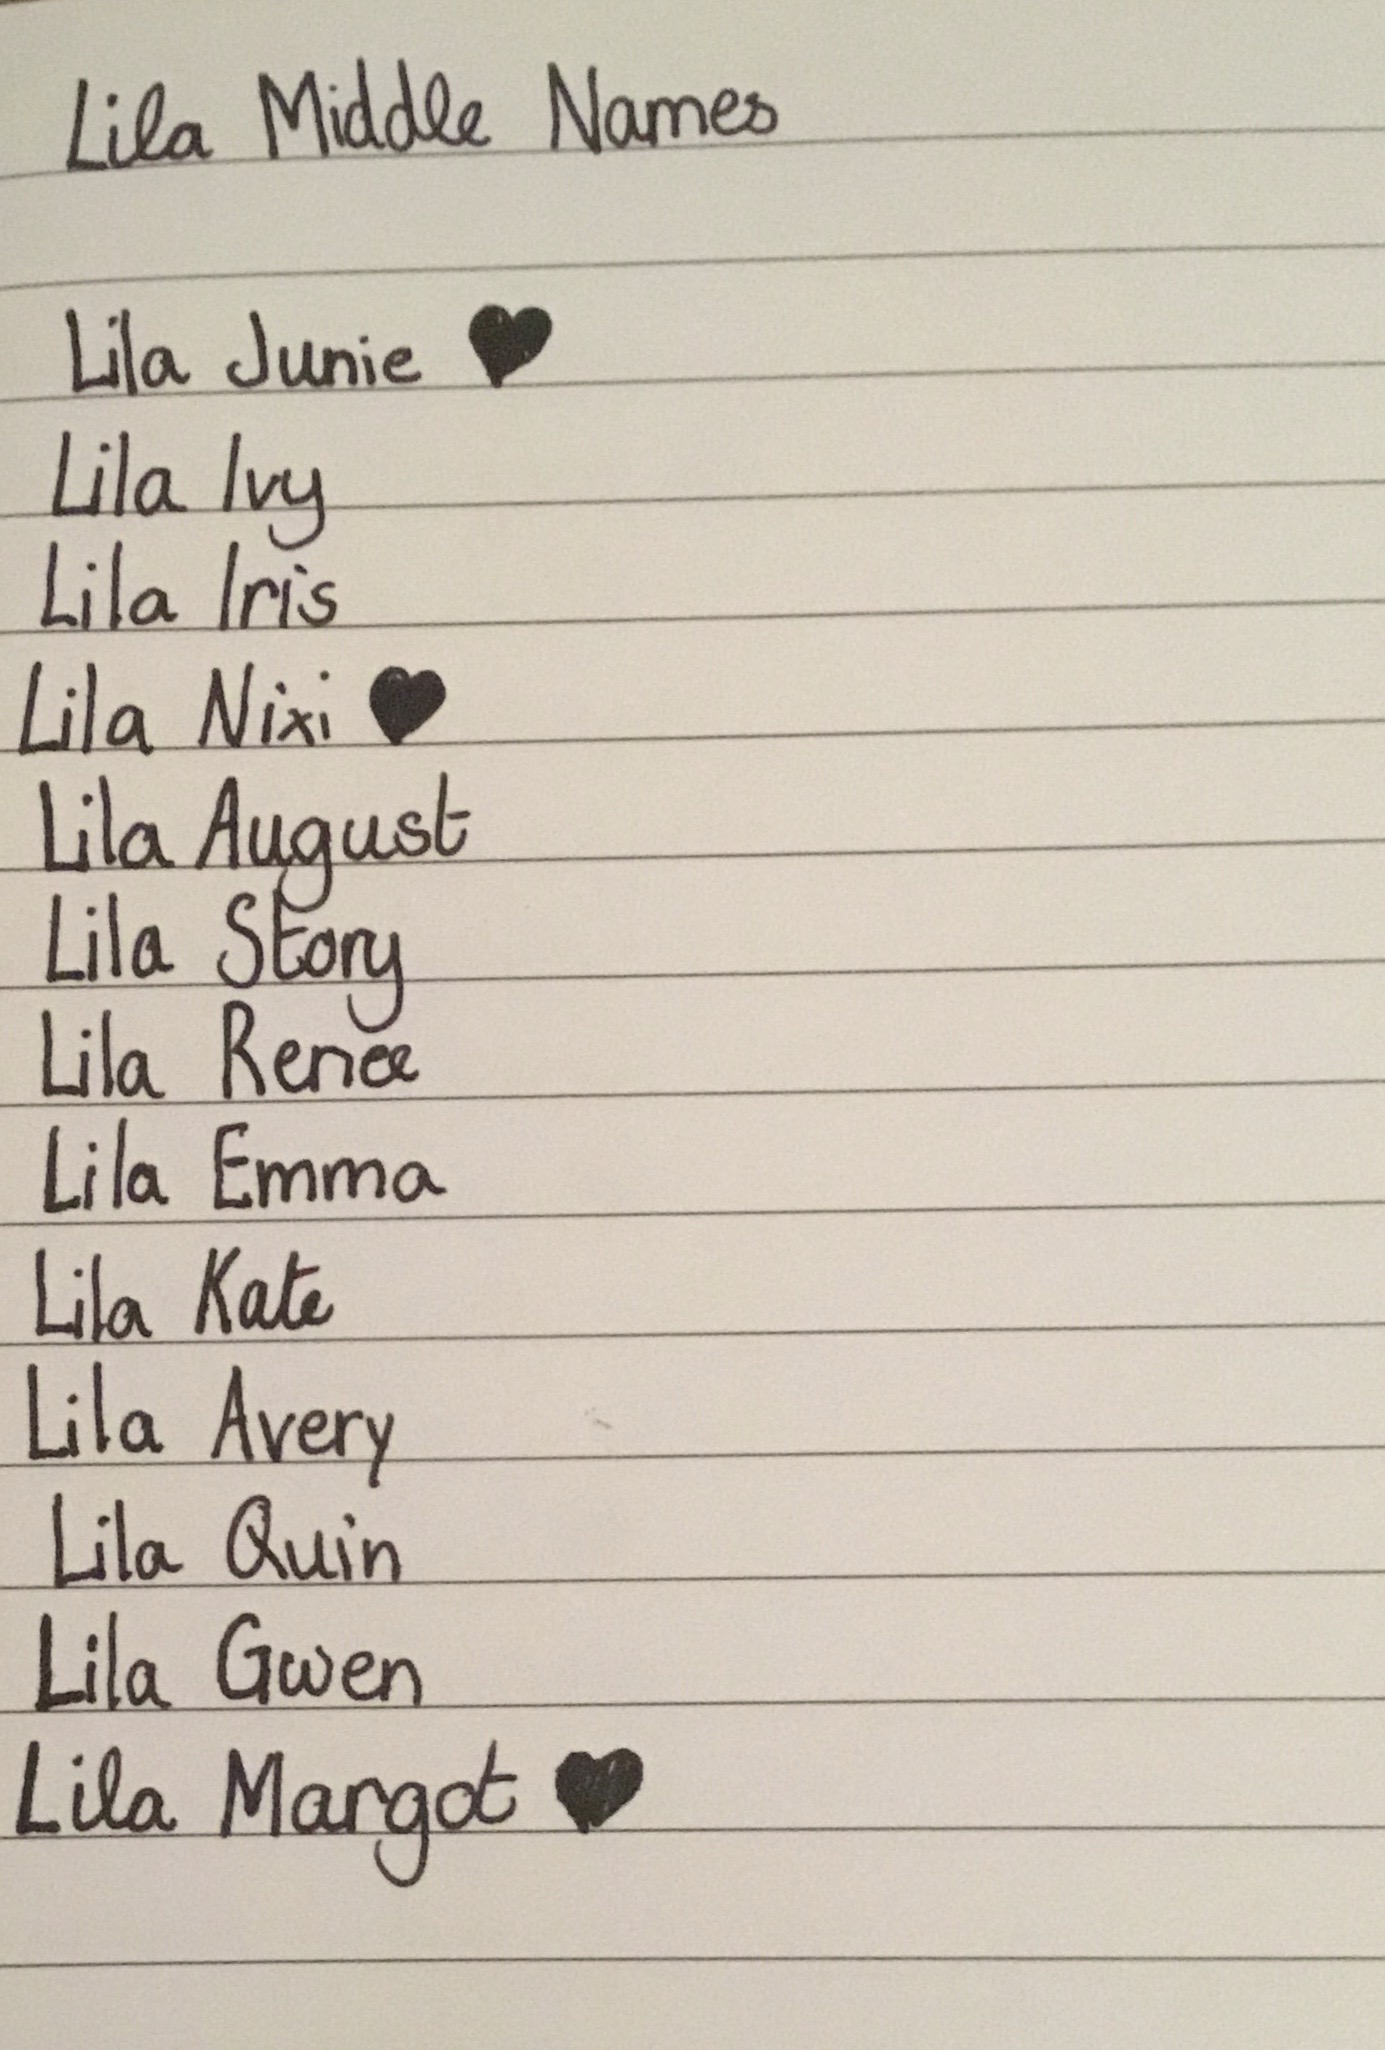 Lila Middle Names
Lila Junie ♥
Lila Ivy
Lila Iris
Lila Nixi ♥
Lila August
Lila Story
Lila Renee
Lila Emma
Lila Kate
Lila Avery
Lila Quin
Lila Gwen
Lila Margot ♥